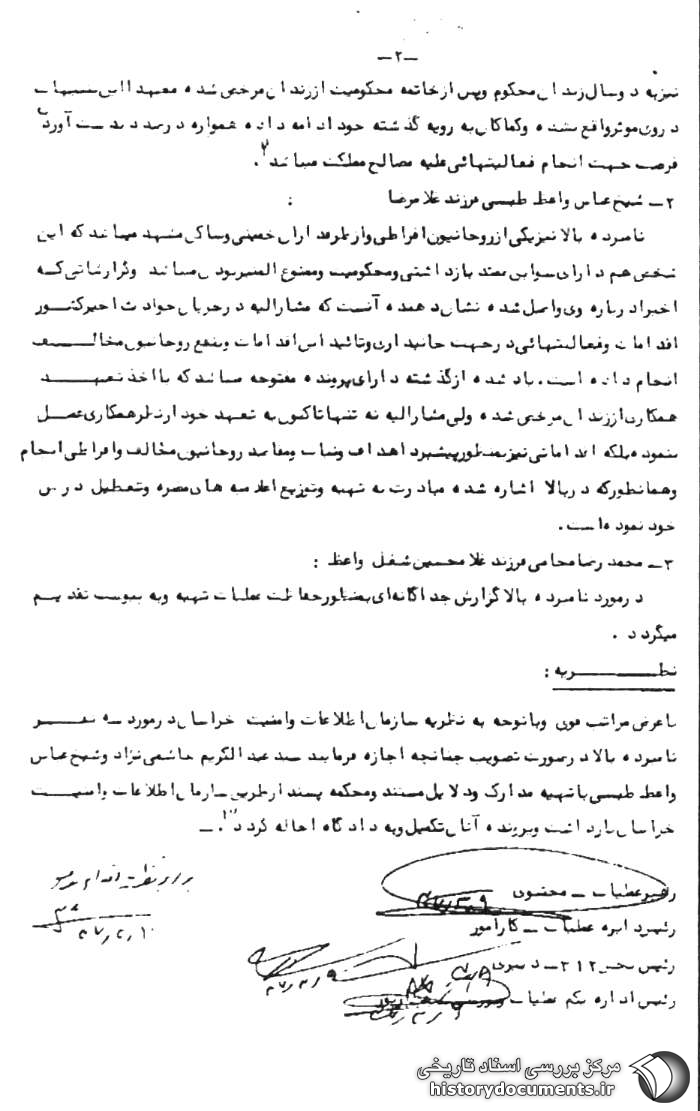 ـ۲ـ
نیزبه دوسال زندان محکوم وپس ازخاتمه محکومیت اززندان مرخص شده معهذا این تنبیهات
دروی موثرواقع نشده وکماکان به رویه گذشته خود ادامه داده همواره درصدد بدست آوردن
فرصت جهت انجام فعالیتهائی علیه مصالح مملکت میباشد .
۲ـ شیخ عباس واعظ طبسی فرزند غلامرضا :
نامبرده بالا نیزیکی ازروحانیون افراطی وازطرفداران خمینی وساکن مشهد میباشد که این
شخص هم دارای سوابق متعدد بازداشتی ومحکومیت وممنوع المنبربودن میباشد وگزارشاتی که
اخیرا درباره وی واصل شده نشان دهنده آنست که مشارالیه درجریان حوادث اخیرکشور
اقدامات وفعالیتهائی درجهت جانبداری وتائید این اقدامات وبنفع روحانیون مخالف
انجام داده است . یاد شده ازگذشته دارای پرونده مفتوحه میباشد که با اخذ تعهد
همکاری اززندان مرخص شده ولی مشارالیه نه تنها تاکنون به تعهد خود ازنظرهمکاری عمل
ننموده بلکه اقداماتی نیزبمنظورپیشبرد اهداف ونیات ومقاصد روحانیون مخالف وافراطی انجام
وهمانطورکه دربالا اشاره شده مبادرت به تهیه وتوزیع اعلامیه های مضره وتعطیل درس
خود نموده است .
۳ـ محمد رضا محامی فرزند غلامحسین شغل واعظ :
درمورد نامبرده بالا گزارش جداگانه‌ای بمنظورحفاظت عملیات تهیه وبه پیوست تقدیم
میگردد .
نظریه :
باعرض مراتب فوق وباتوجه به نظریه سازمان اطلاعات وامنیت خراسان درمورد سه نفر
نامبرده بالا درصورت تصویب چنانچه اجازه فرمایند سید عبدالکریم هاشمی نژاد وشیخ عباس
واعظ طبسی باتهیه مدارک ودلایل مستند ومحکمه پسند ازطریق سازمان اطلاعات وامنیت
خراسان بازداشت وپرونده آنان تکمیل وبه دادگاه احاله گردد . ـ
رهبرعملیات ـ محضوی
رئیس دایره عملیات ـ کارآموز
رئیس بخش ۳۱۲ ـ
رئیس اداره یکم عملیات
مرکز بررسی اسناد تاریخی
historydocuments.ir